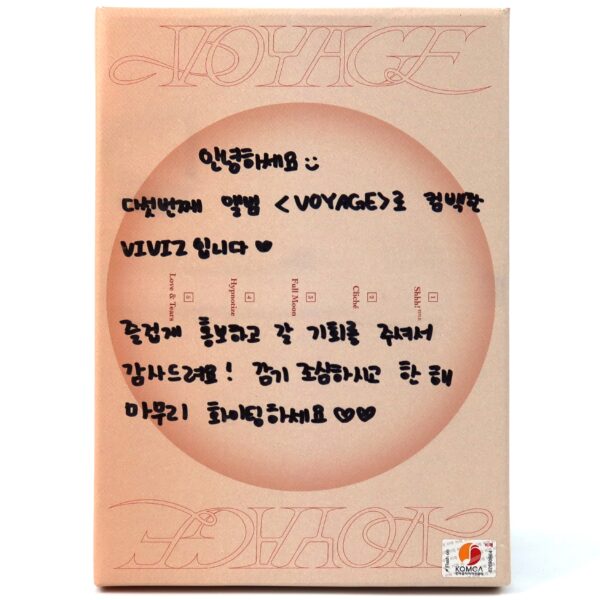 VOYAGE
안녕하세요 :)
다섯번째 앨범 <VOYAGE>로 컴백한
VIVIZ 입니다 ♥
1 Shhh! TITLE
2 Cliché
3 Full Moon
4 Hypnotize
5 Love & Tears
즐겁게 홍보하고 갈 기회를 주셔서
감사드려요! 감기 조심하시고 한 해
마무리 화이팅하세요 ♡♡
VOYAGE
KOMCA